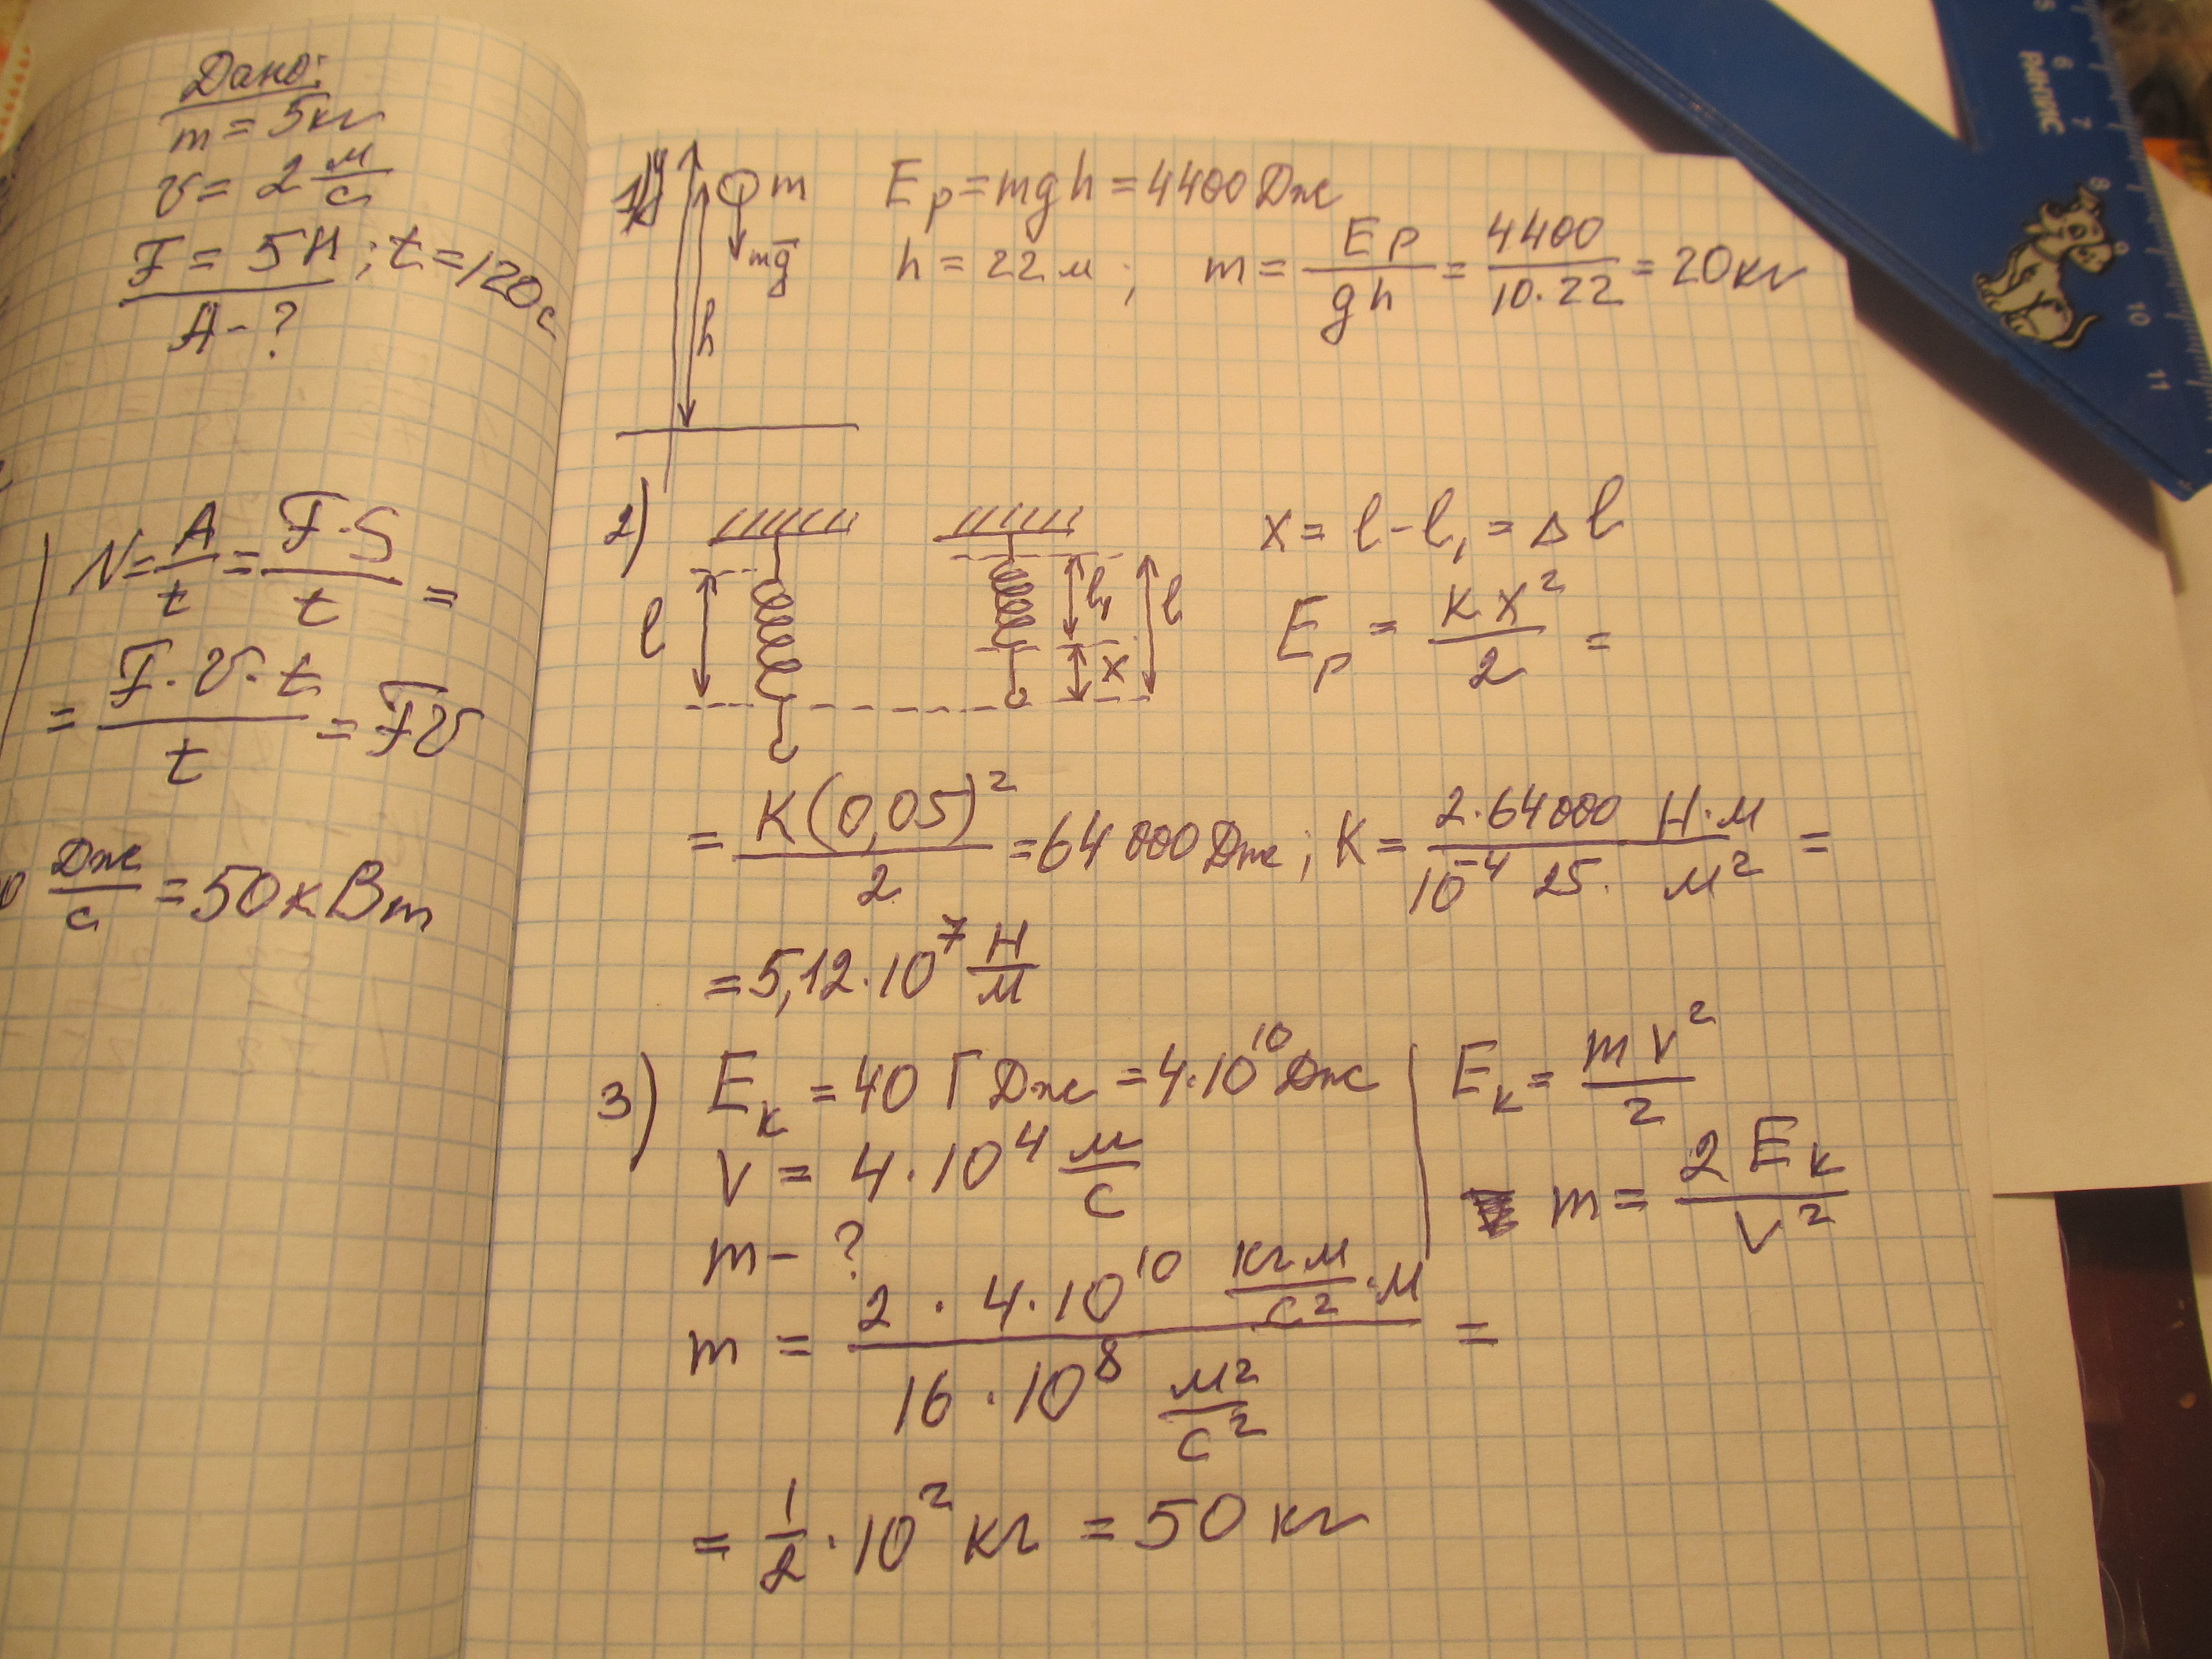 Дано:
m = 5кг
v = 2 м/с
F = 5Н ; t = 120с
A - ?
N = A/t = F·S/t =
= F·v·t/t = Fv
Дж/с = 50кВт
1) y m mg h
Ep = mgh = 4400 Дж
h = 22 м ; m = Ep/gh = 4400/10·22 = 20кг
2) l l₁ x l
x = l - l₁ = Δl
Ep = Kx²/2 =
= K(0,05)²/2 = 64 000 Дж ; K = 2·64000 Н·м/10⁻⁴ 25. м² =
= 5,12·10⁷ Н/м
3) Eк = 40 ГДж = 4·10¹⁰ Дж | Eк = mv²/2
V = 4·10⁴ м/с
m = 2Eк/V²
m - ?
m = 2 · 4·10¹⁰ кг м/с² · м / 16·10⁸ м²/с² =
= 1/2 · 10² кг = 50 кг
РАНТИС
5 6 7 8 9 10 11